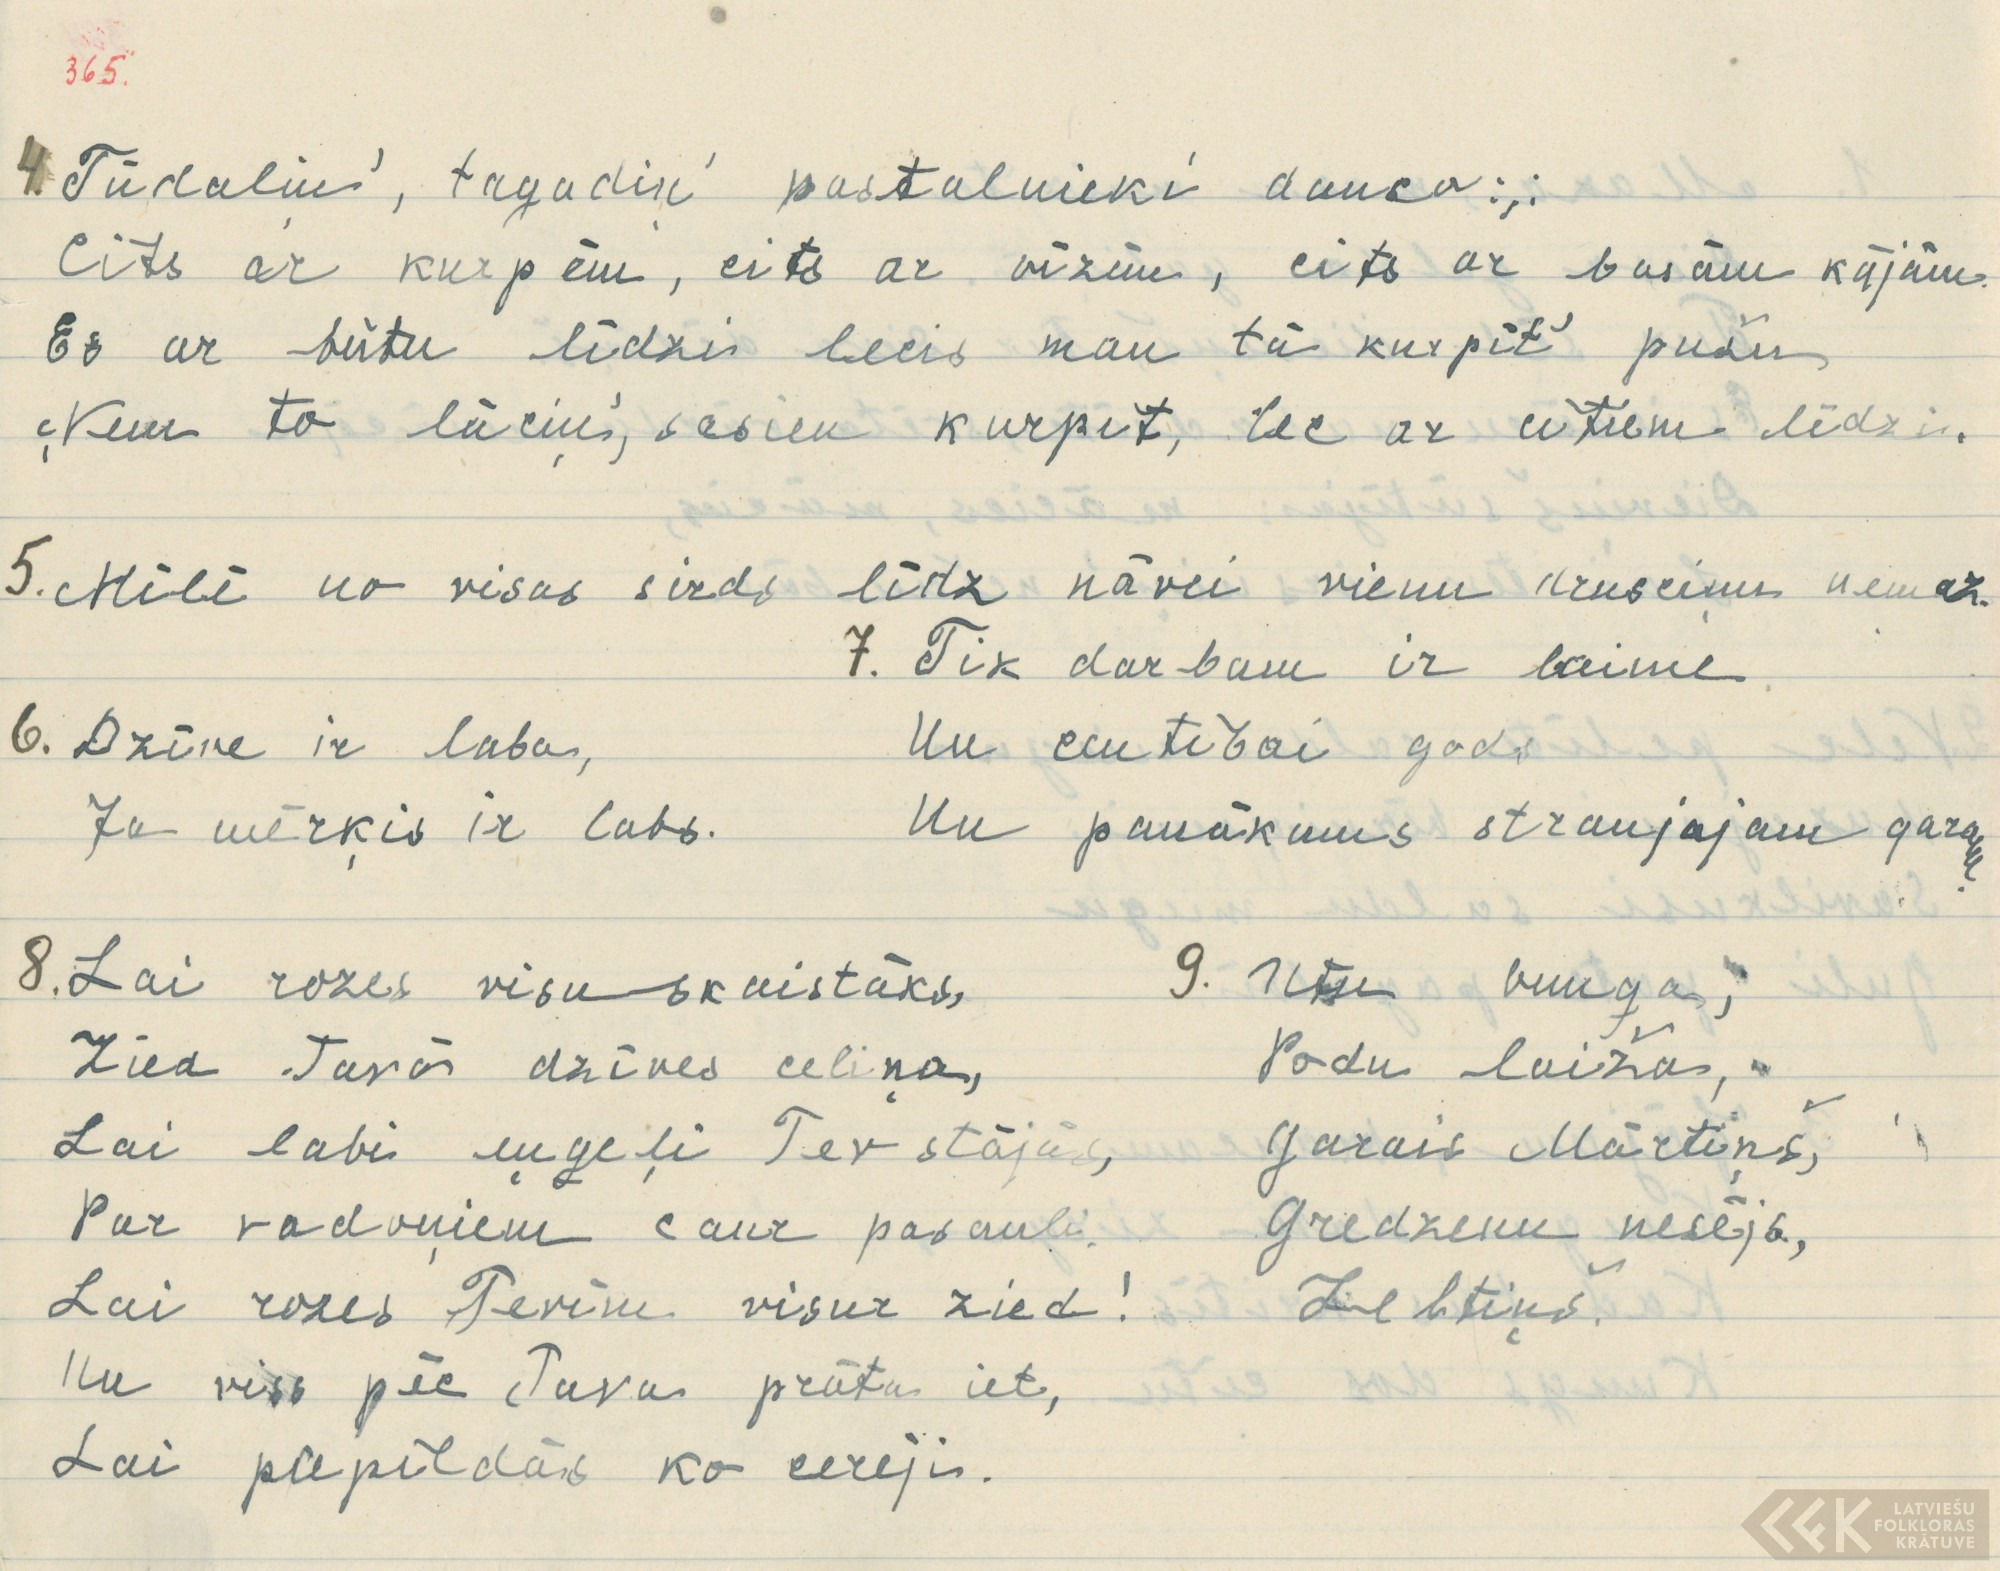 365.
4. Tūdaliņ', tagadiņ' pastalnieki danco :,:
Cits ar kurpēm, cits ar vīzēm, cits ar basām kājām.
Es ar būtu līdzi lecis man tā kurpīt' pušu
Ņem to lāciņ', sasien kurpīt, lec ar citiem līdzi.
5. Mīlē no visas sirds līdz nāvei vienu drusciņu nemaz.
6. Dzīve ir laba,
Ja mērķis ir labs.
7. Tik darbam ir laime
Un centībai gods
Un panākums straujajam garam.
8. Lai rozes visu skaistāks,
Zied Tavā dzīves celiņa,
Lai labi eņģeļi Tev stājās,
Par vadoņiem caur pasauli.
Lai rozes Tevīm visur zied!
Un viss pēc Tava prāta iet,
Lai piepildās ko cerēji.
9. Utu bunga,
Podu laiža,
Garais Mārtiņš,
Gredzenu nesējs,
Zeltiņš.
LATVIEŠU
FOLKLORAS
KRĀTUVE